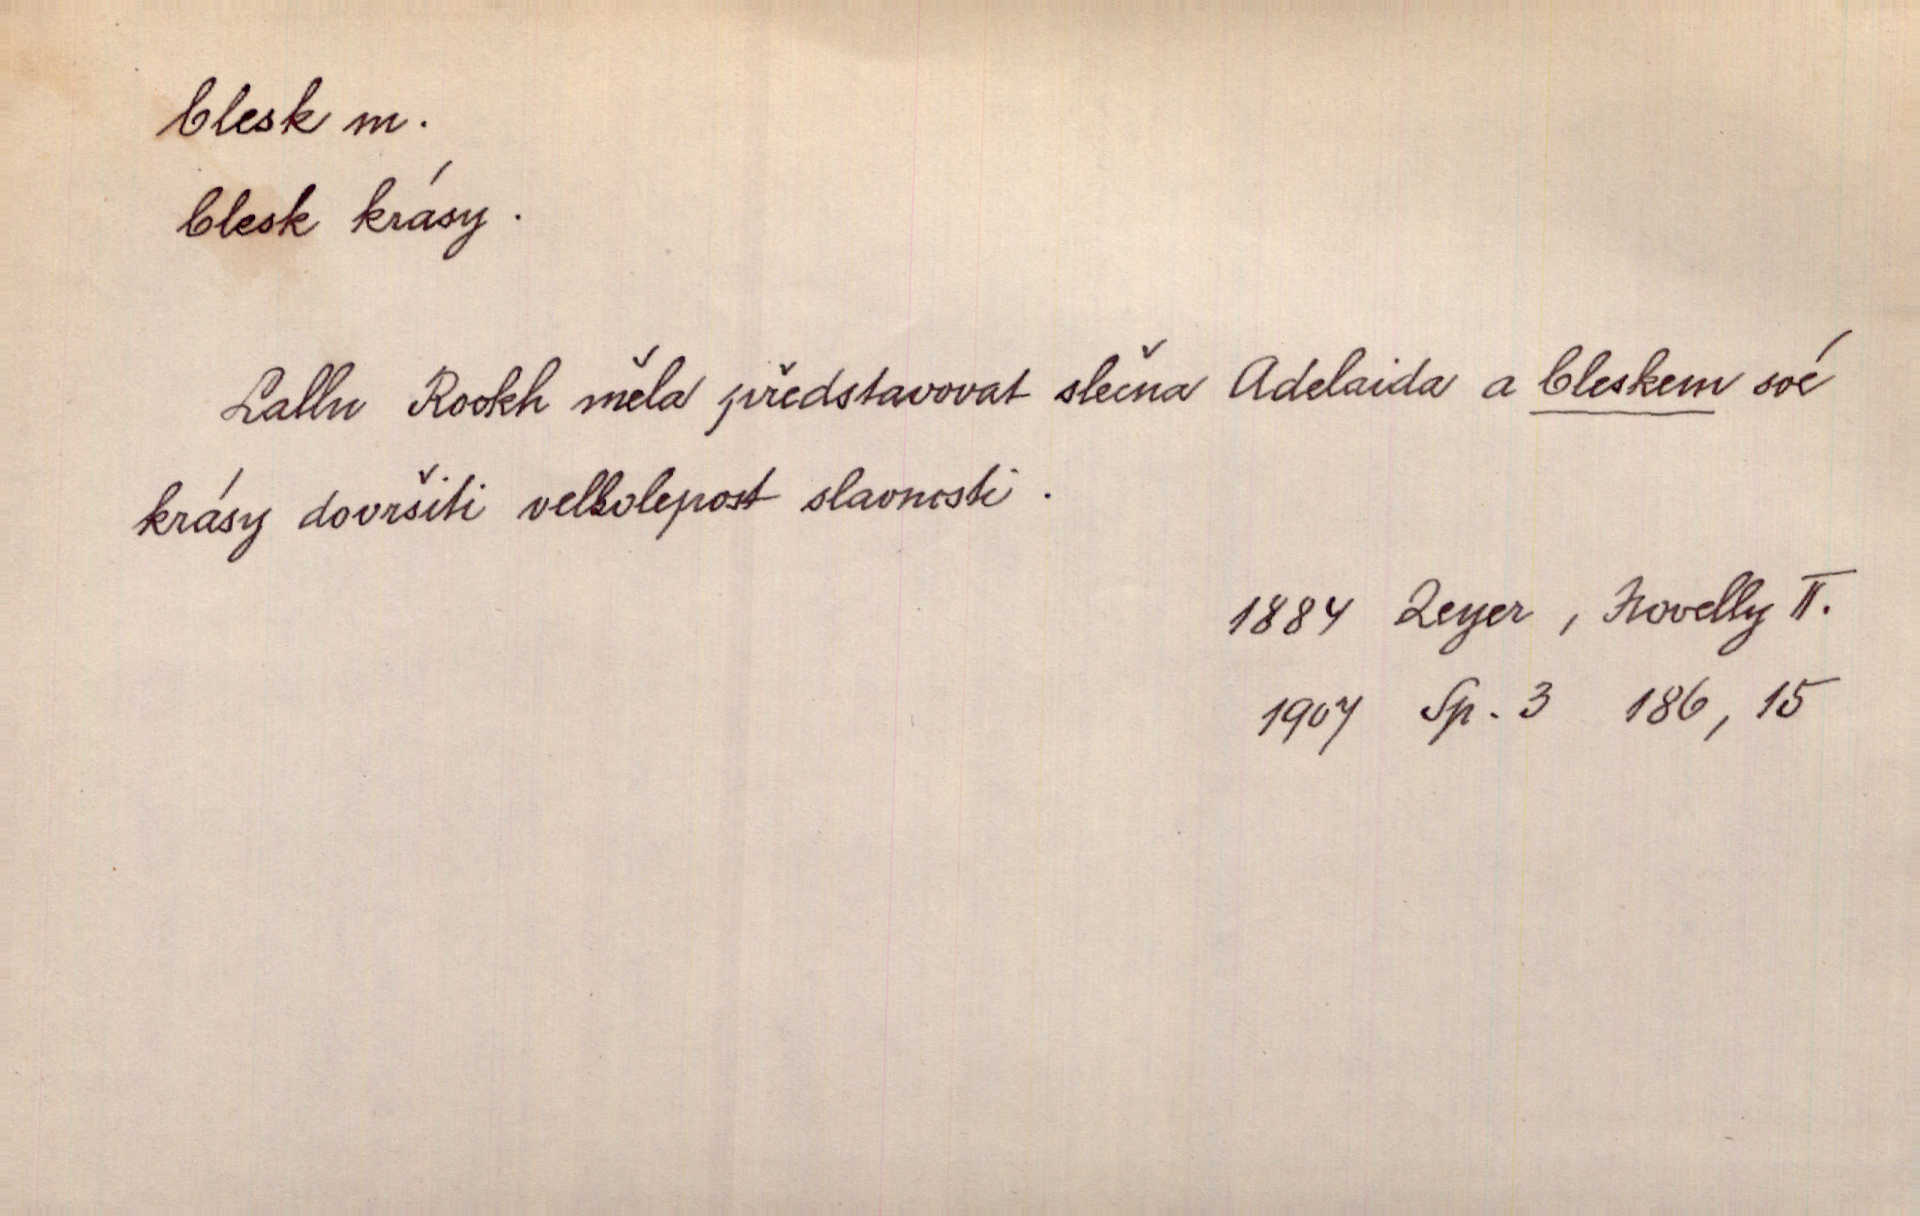 blesk m.
blesk krásy.
Lallu Rookh měla představovat slečna Adelaida a bleskem své
krásy dovršiti velkolepost slavnosti.
1884 Zeyer, Novelly II.
1907 Sp. 3 186, 15